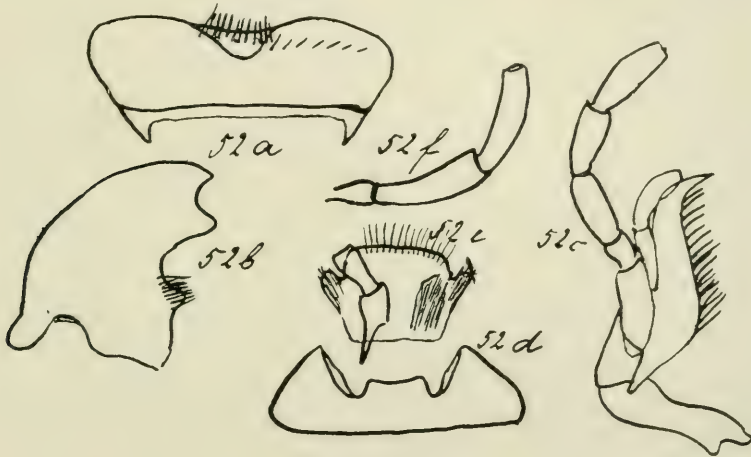 52 a
52 f
52 b
52 e
52 c
52 d